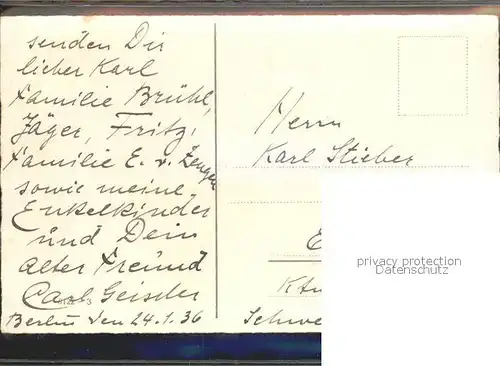 senden Dir
lieber Karl
Familie Brühl,
Jäger, Fritz,
Familie E. v. Zengen
sowie meine
Enkelkinder
und Dein
alter Freund
Carl Geissler
Berlin den 24.1.36
Herrn
Karl Stieber
privacy protection
Datenschutz